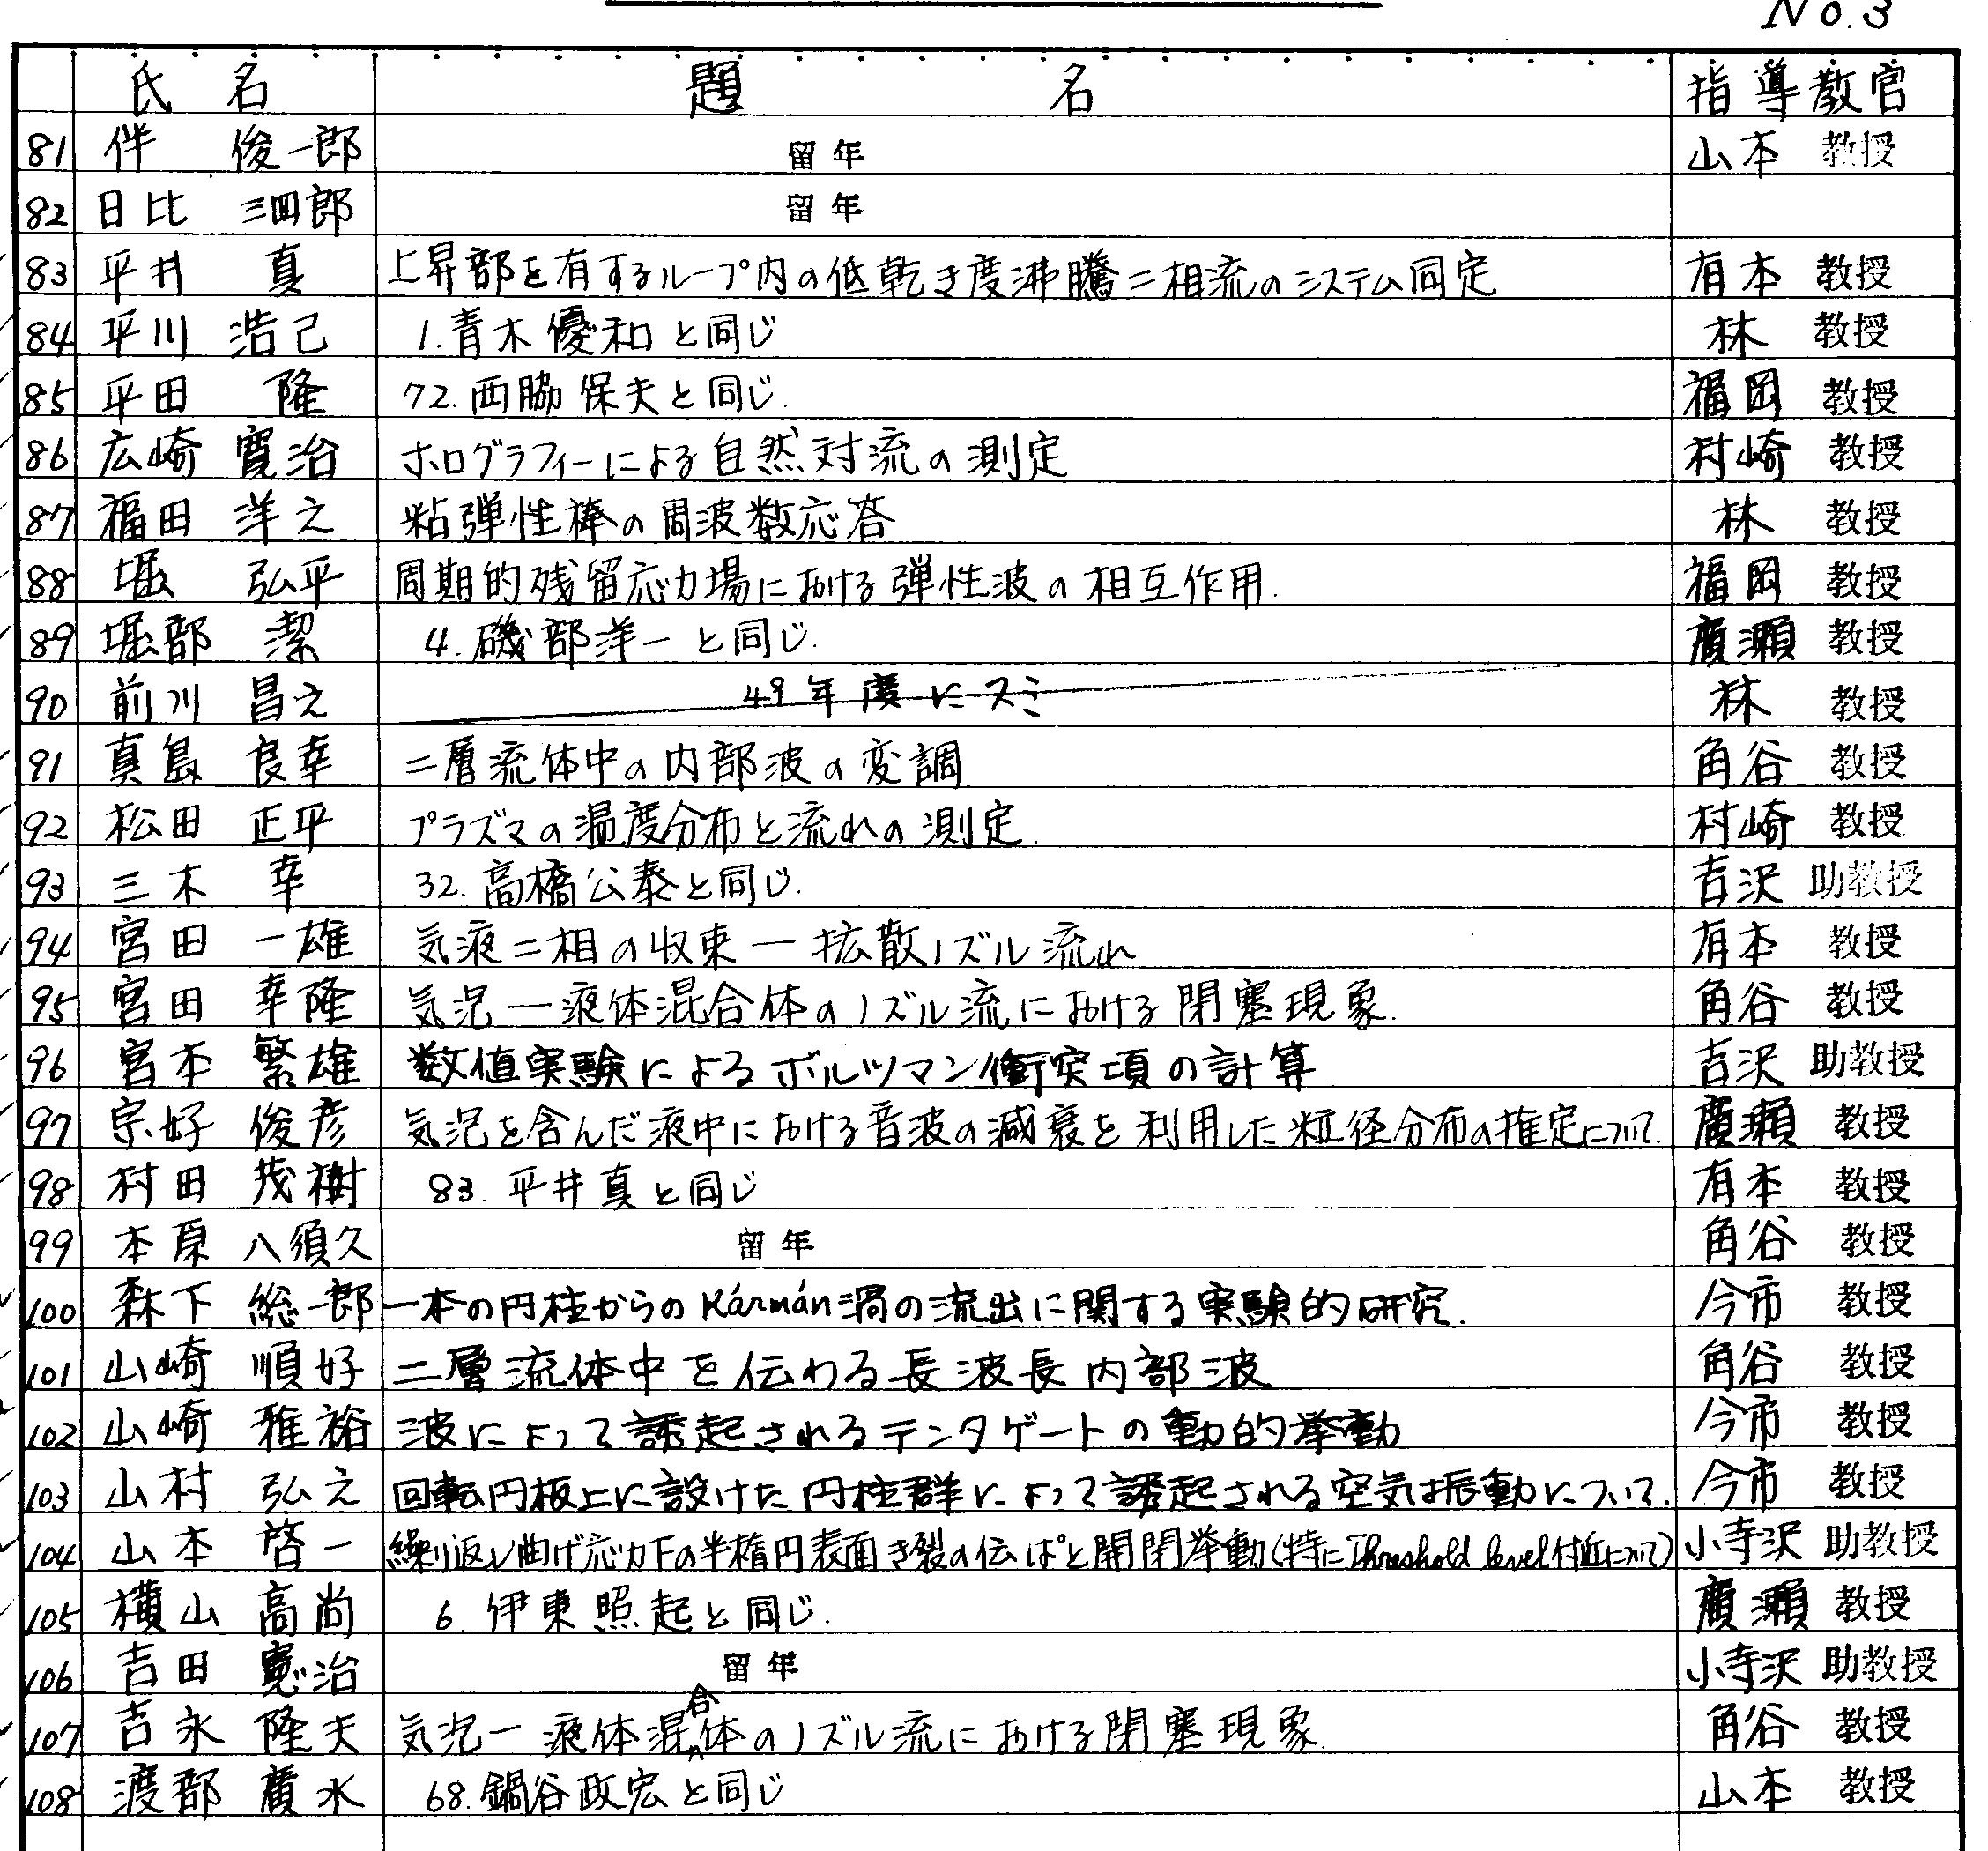 No.3
氏名 題名 指導教官
81 伴 俊一郎 留年 山本 教授
82 日比 三四郎 留年
83 平井 真 上昇部を有するループ内の低乾き度沸騰二相流のシステム同定 有本 教授
84 平川 浩己 1.青木優和と同じ 林 教授
85 平田 隆 72.西脇保夫と同じ. 福岡 教授
86 広崎 寛治 ホログラフィーによる自然対流の測定 村崎 教授
87 福田 洋之 粘弾性棒の周波数応答 林 教授
88 堀 弘平 周期的残留応力場における弾性波の相互作用. 福岡 教授
89 堀部 潔 4.磯部洋一と同じ. 廣瀬 教授
90 前川 昌之 49年度にスミ 林 教授
91 真島 良幸 二層流体中の内部波の変調 角谷 教授
92 松田 正平 プラズマの温度分布と流れの測定. 村崎 教授
93 三木 幸 32.高橋公泰と同じ. 吉沢 助教授
94 宮田 一雄 気液二相の収束ー拡散ノズル流れ 有本 教授
95 宮田 幸隆 気泡ー液体混合体のノズル流における閉塞現象. 角谷 教授
96 宮本 繁雄 数値実験によるボルツマン衝突項の計算 吉沢 助教授
97 宗好 俊彦 気泡を含んだ液中における音波の減衰を利用した粒径分布の推定について. 廣瀬 教授
98 村田 茂樹 83.平井真と同じ 有本 教授
99 本原 八須久 留年 角谷 教授
100 森下 総一郎 一本の円柱からのKármán渦の流出に関する実験的研究. 今市 教授
101 山崎 順好 二層流体中を伝わる長波長内部波 角谷 教授
102 山崎 雅裕 波によって誘起されるテンタゲートの動的挙動 今市 教授
103 山村 弘之 回転円板上に設けた円柱群によって誘起される空気振動について. 今市 教授
104 山本 啓一 繰り返し曲げ応力下の半楕円表面き裂の伝ぱと開閉挙動(特にThreshold level付近について) 小寺沢 助教授
105 横山 高尚 6.伊東照起と同じ. 廣瀬 教授
106 吉田 憲治 留年 小寺沢 助教授
107 吉永 隆夫 気泡ー液体混合体のノズル流における閉塞現象. 角谷 教授
108 渡部 廣水 68.鍋谷政宏と同じ 山本 教授